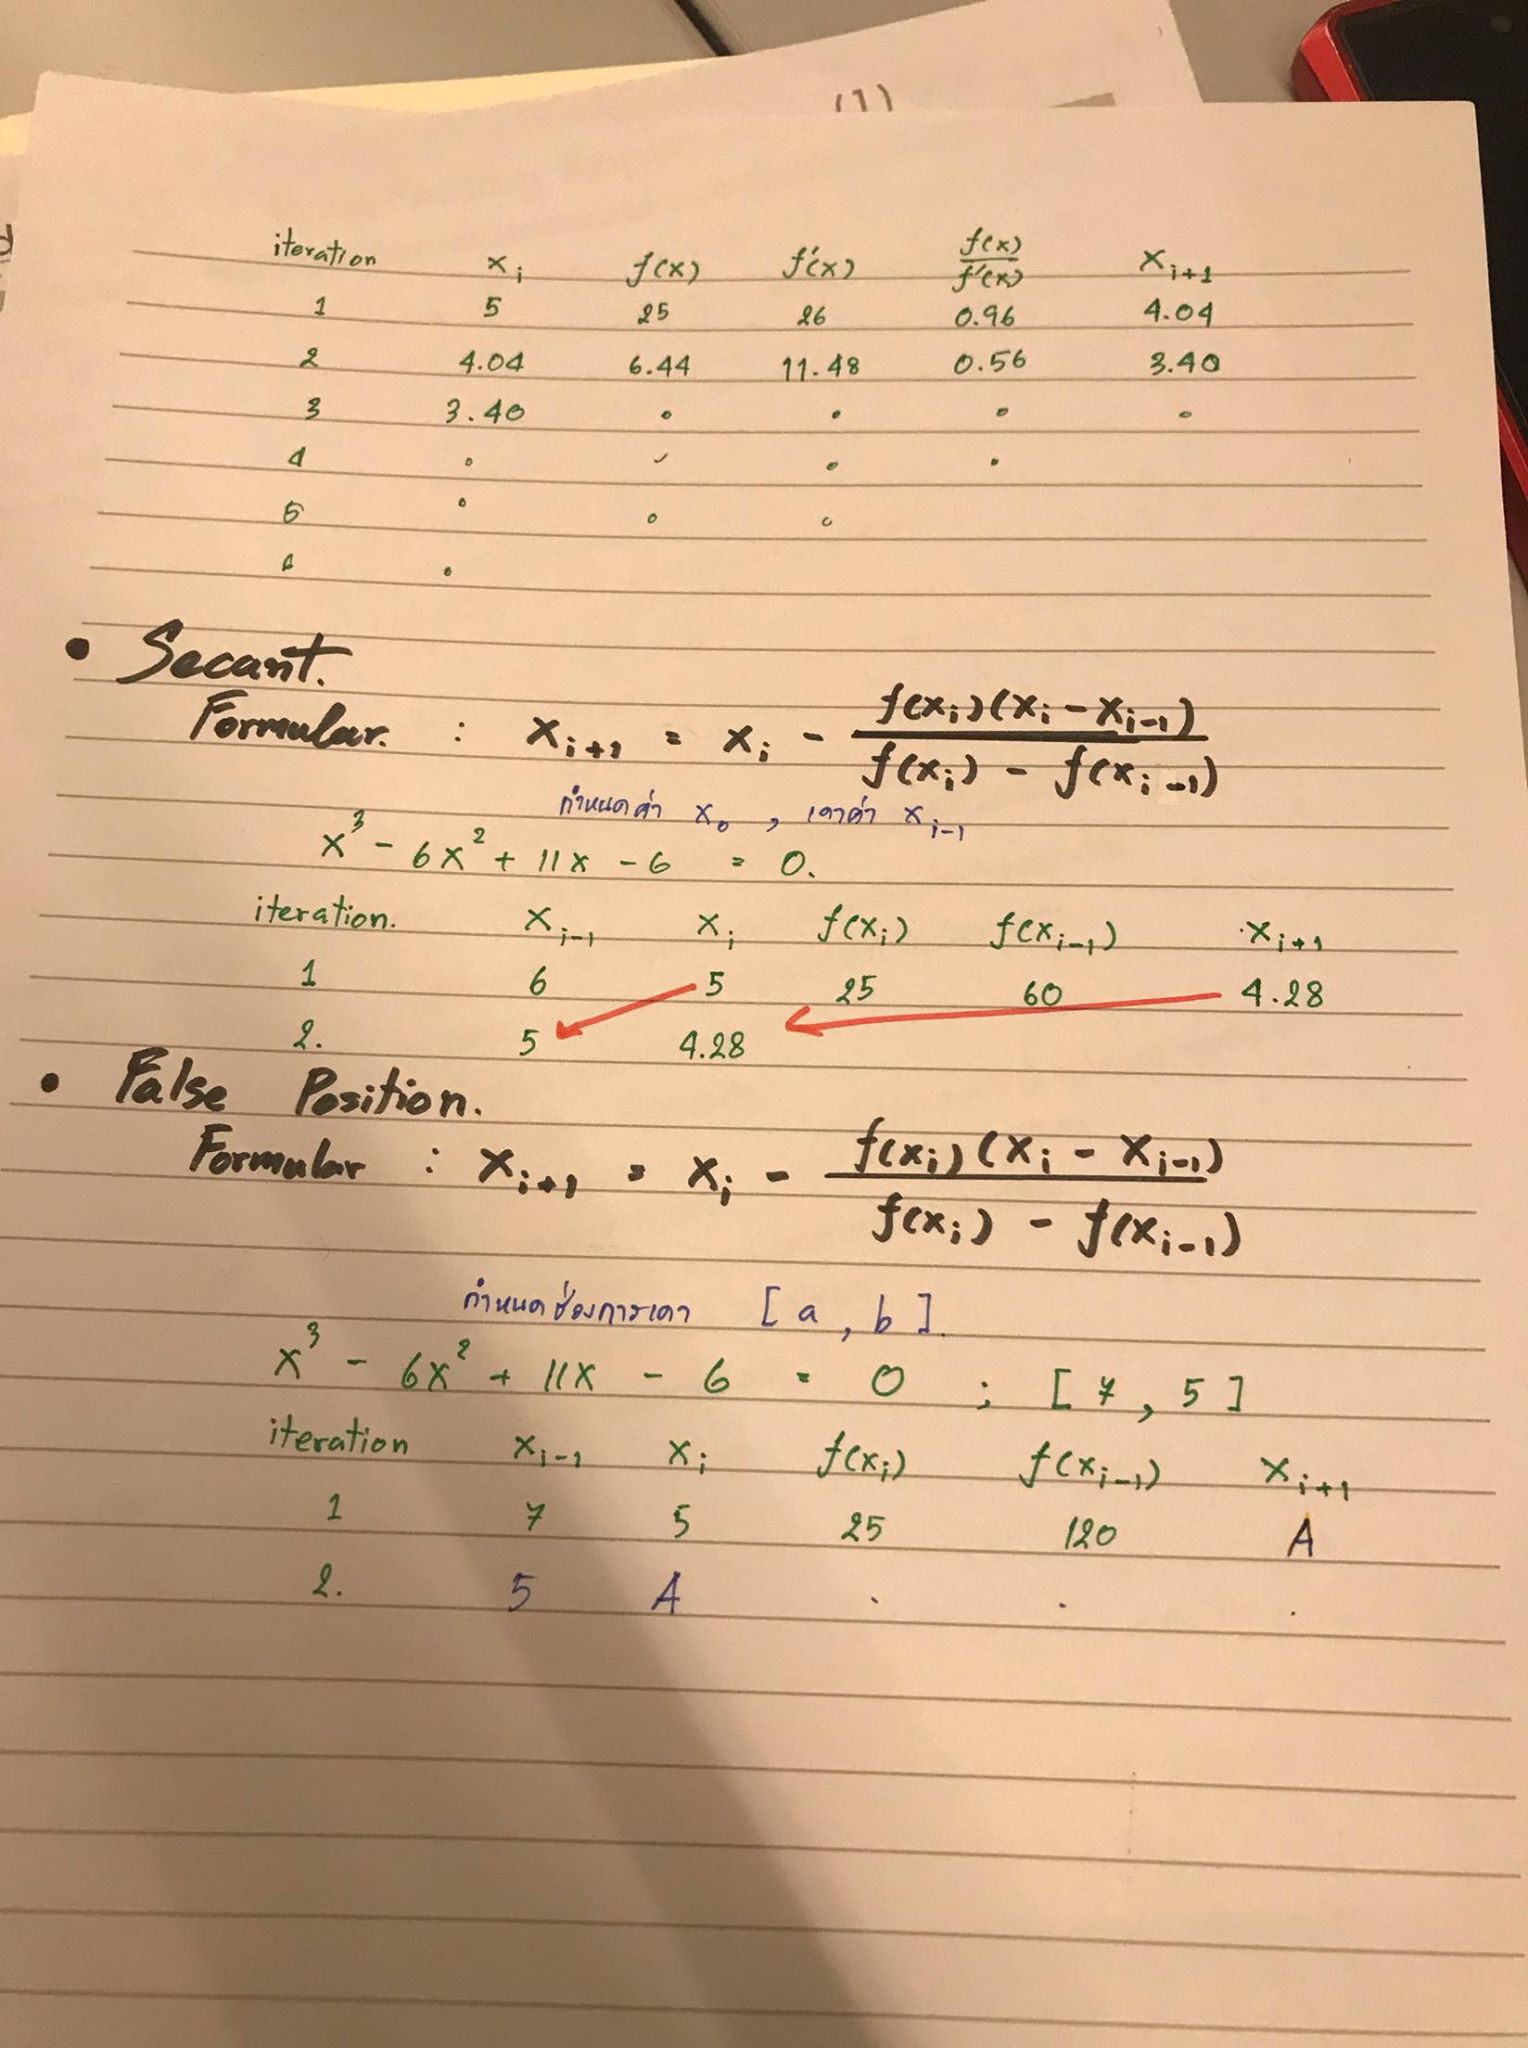 (1)
d
iteration xᵢ f(x) f'(x) f(x)/f'(x) xᵢ₊₁
1 5 25 26 0.96 4.04
2 4.04 6.44 11.48 0.56 3.40
3 3.40 . . . .
4 . . . .
5 . . .
.
• Secant.
Formular. : xᵢ₊₁ = xᵢ - f(xᵢ)(xᵢ - xᵢ₋₁) / f(xᵢ) - f(xᵢ₋₁)
กำหนดค่า x₀ , เดาค่า xᵢ₋₁
x³ - 6x² + 11x - 6 = 0.
iteration. xᵢ₋₁ xᵢ f(xᵢ) f(xᵢ₋₁) xᵢ₊₁
1 6 5 25 60 4.28
2. 5 4.28
• False Position.
Formular : xᵢ₊₁ = xᵢ - f(xᵢ)(xᵢ - xᵢ₋₁) / f(xᵢ) - f(xᵢ₋₁)
กำหนดช่วงการเดา [a, b].
x³ - 6x² + 11x - 6 = 0 ; [7, 5]
iteration xᵢ₋₁ xᵢ f(xᵢ) f(xᵢ₋₁) xᵢ₊₁
1 7 5 25 120 A
2. 5 A . . .